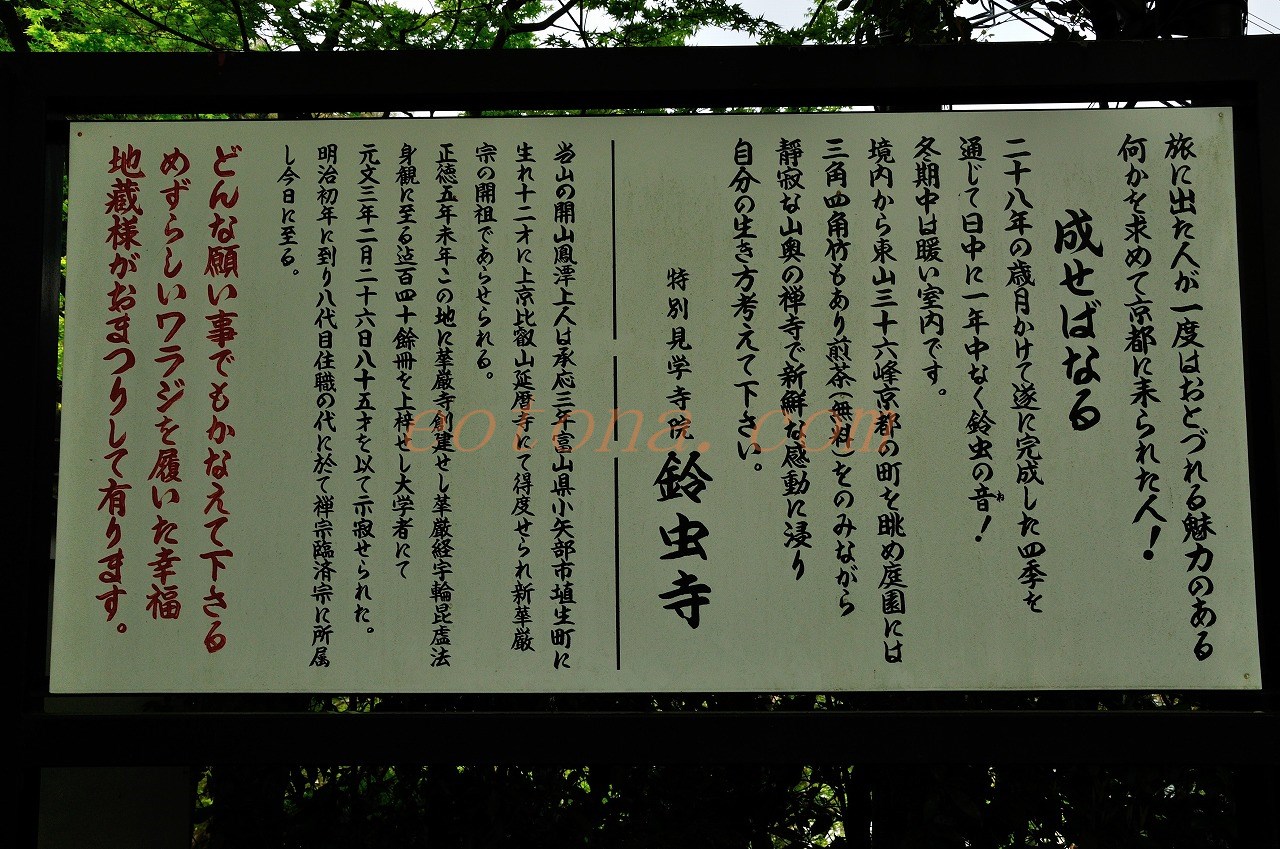 旅に出た人が一度はおとづれる魅力のある
何かを求めて京都に来られた人！
成せばなる
二十八年の歳月かけて遂に完成した四季を
通じて日中に一年中なく鈴虫の音！
ね
冬期中は暖い室内です。
境内から東山三十六峰京都の町を眺め庭園には
三角四角竹もあり煎茶（無料）をのみながら
静寂な山奥の禅寺で新鮮な感動に浸り
自分の生き方考えて下さい。
特別見学寺院 鈴虫寺
当山の開山鳳潭上人は承応三年富山県小矢部市埴生町に
生れ十二才に上京比叡山延暦寺にて得度せられ新華厳
宗の開祖であらせられる。
正徳五年未年この地に華厳寺創建せし華厳経宇輪昆盧法
身観に至る迠百四十餘冊を上梓せし大学者にて
元文三年二月二十六日八十五才を以て示寂せられた。
明治初年に到り八代目住職の代に於て禅宗臨済宗に所属
し今日に至る。
どんな願い事でもかなえて下さる
めずらしいワラジを履いた幸福
地蔵様がおまつりして有ります。
eotona.com